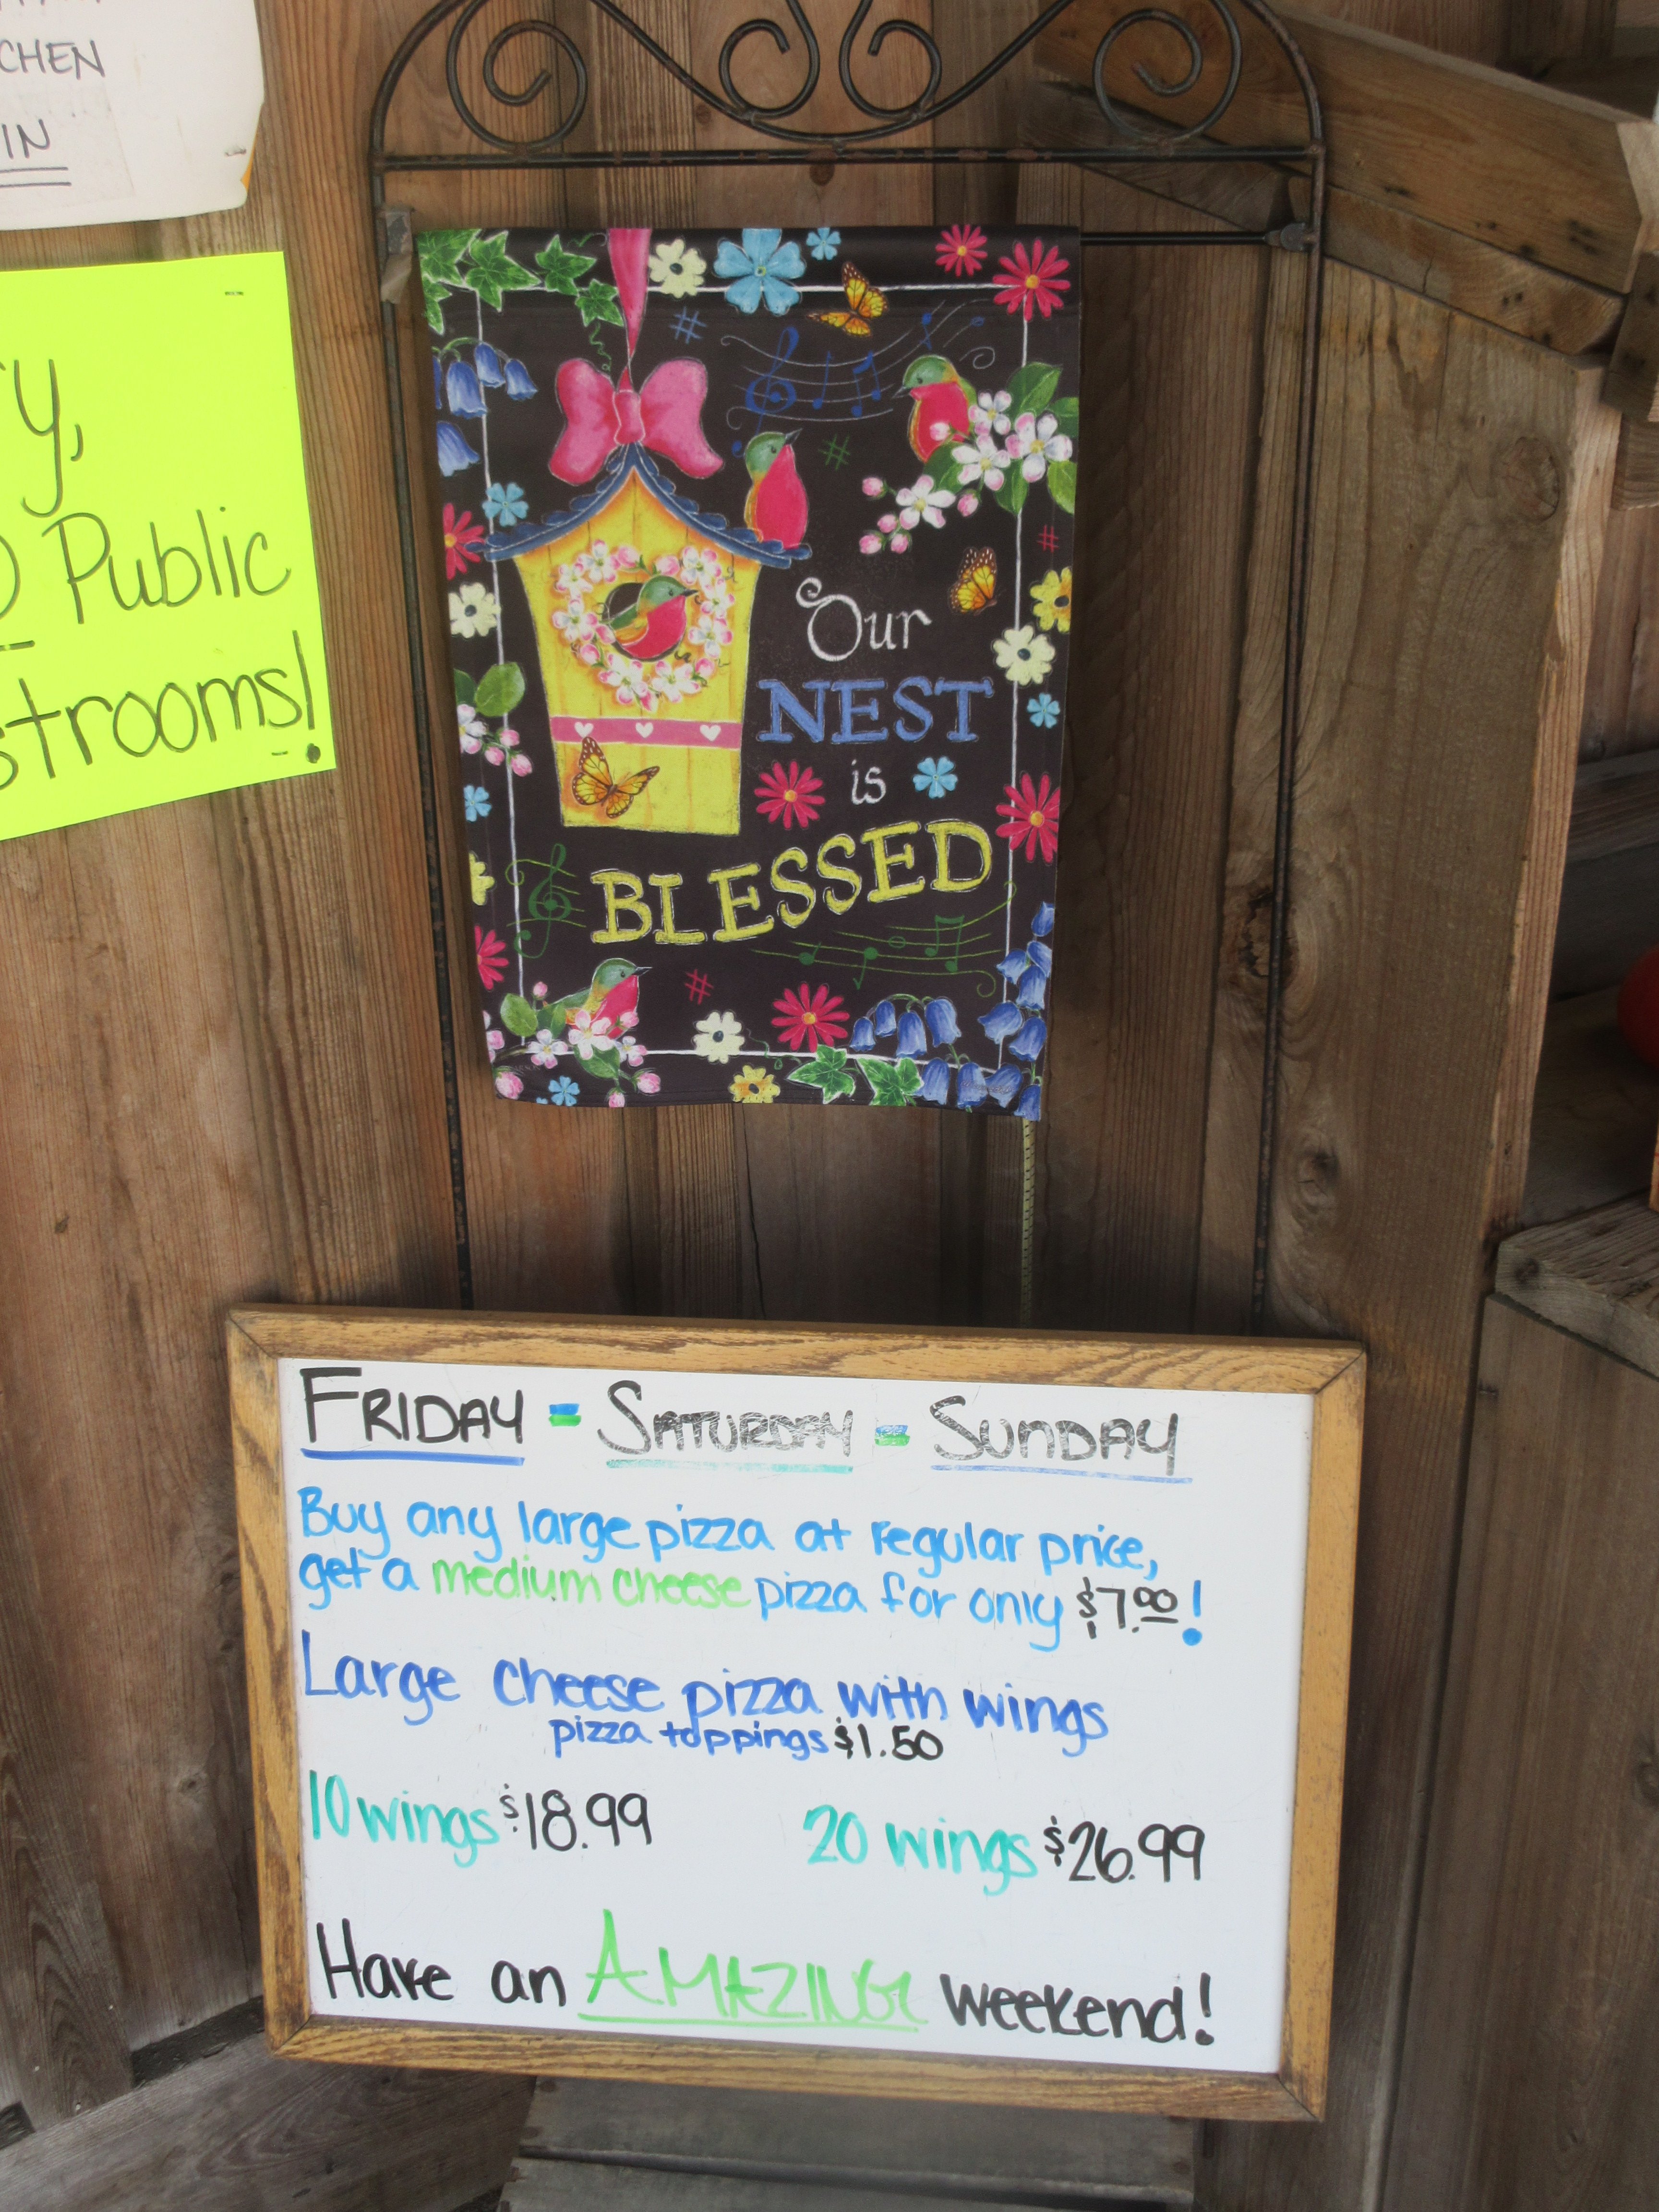 CHEN
IN
y,
Public
strooms!
Our
NEST
is
BLESSED
FRIDAY = SATURDAY = SUNDAY
Buy any large pizza at regular price,
get a medium cheese pizza for only $7.00!
Large cheese pizza with wings
pizza toppings $1.50
10 wings $18.99 20 wings $26.99
Have an AMAZING weekend!